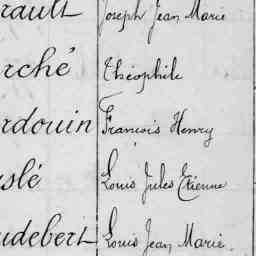 rault Joseph Jean Marie
rché Théophile
rdouin Francois Henry
slé Louis Jules Etienne
udebert Louis Jean Marie